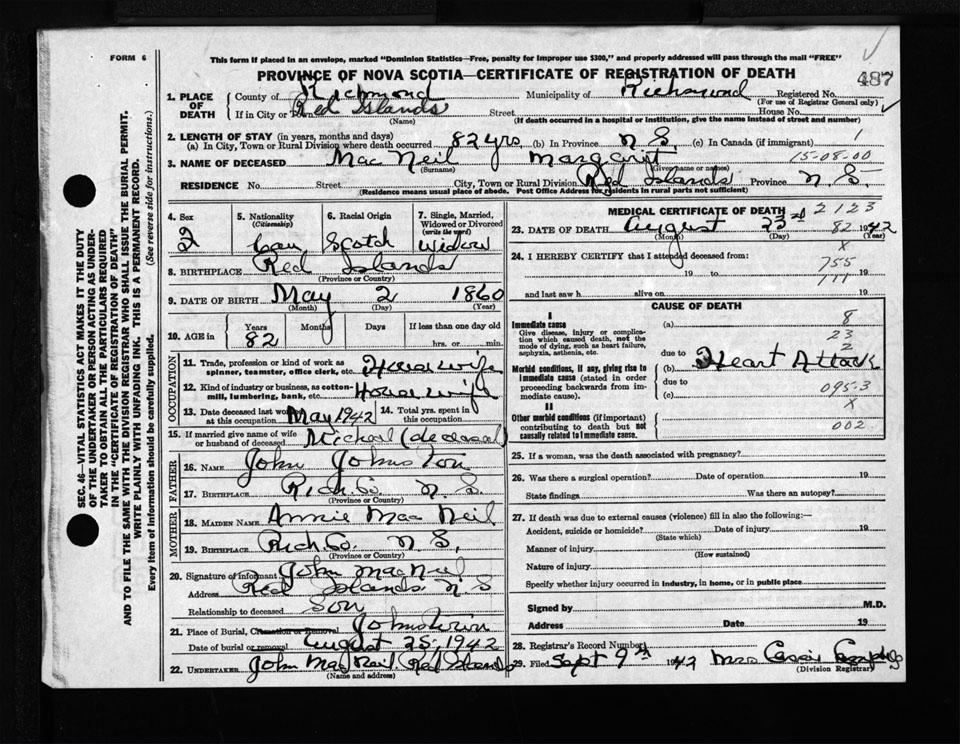 FORM 6
This form if placed in an envelope, marked "Dominion Statistics—Free, penalty for improper use $300," and properly addressed will pass through the mail "FREE"
PROVINCE OF NOVA SCOTIA—CERTIFICATE OF REGISTRATION OF DEATH
487
1. PLACE OF DEATH
County of Richmond Municipality of Richmond Registered No.
(For use of Registrar General only)
If in City or Town Red Islands Street House No.
(Name) (If death occurred in a hospital or institution, give the name instead of street and number)
2. LENGTH OF STAY (in years, months and days)
(a) In City, Town or Rural Division where death occurred 82 yrs. (b) In Province N.S. (c) In Canada (if immigrant) 1
3. NAME OF DECEASED Mac Neil Margaret 15-08-00
(Surname) (Given name or names)
RESIDENCE No. Street City, Town or Rural Division Red Islands Province N.S.
(Residence means usual place of abode. Post Office Address for residents in rural parts not sufficient)
4. Sex
2
5. Nationality
(Citizenship)
Can
6. Racial Origin
Scotch
7. Single, Married, Widowed or Divorced
(write the word)
Widow
8. BIRTHPLACE Red Islands
(Province or Country)
9. DATE OF BIRTH May 2 1860
(Month) (Day) (Year)
10. AGE in
Years Months Days If less than one day old
82 hrs. or min.
OCCUPATION
11. Trade, profession or kind of work as spinner, teamster, office clerk, etc. House wife
12. Kind of industry or business, as cotton-mill, lumbering, bank, etc. House wife
13. Date deceased last worked at this occupation May 1942 14. Total yrs. spent in this occupation
15. If married give name of wife or husband of deceased Michael (deceased)
FATHER
16. NAME John Johnston
17. BIRTHPLACE Rich Co. N.S.
(Province or Country)
MOTHER
18. MAIDEN NAME Annie Mac Neil
19. BIRTHPLACE Rich Co. N.S,
(Province or Country)
20. Signature of informant John MacNeil
Address Red Islands N S
Relationship to deceased Son
21. Place of Burial, Cremation or Removal Johnstown
Date of burial or removal August 25, 1942
22. UNDERTAKER John MacNeil Red Islands
(Name and address)
MEDICAL CERTIFICATE OF DEATH 2123
23. DATE OF DEATH August 23rd 82 1942
(Month) (Day) (Year)
x
24. I HEREBY CERTIFY that I attended deceased from:
755
19 to 19
111
and last saw h alive on 19
CAUSE OF DEATH
I
Immediate cause
Give disease, injury or complication which caused death, not the mode of dying, such as heart failure, asphyxia, asthenia, etc.
(a) 8
23
2
due to
(b) Heart Attack
Morbid conditions, if any, giving rise to immediate cause (stated in order proceeding backwards from immediate cause)
due to
(c) 095-3
x
II
Other morbid conditions (if important) contributing to death but not causally related to immediate cause.
002
25. If a woman, was the death associated with pregnancy?
26. Was there a surgical operation? Date of operation 19
State findings Was there an autopsy?
27. If death was due to external causes (violence) fill in also the following:—
Accident, suicide or homicide? Date of injury 19
(State which)
Manner of injury
(How sustained)
Nature of injury
Specify whether injury occurred in industry, in home, or in public place
Signed by M.D.
Address Date 19
28. Registrar's Record Number
29. Filed Sept 9th 1942 Mrs Cassie
(Division Registrar)
SEC. 46—VITAL STATISTICS ACT MAKES IT THE DUTY OF THE UNDERTAKER OR PERSON ACTING AS UNDERTAKER TO OBTAIN ALL THE PARTICULARS REQUIRED IN THE "CERTIFICATE OF REGISTRATION OF DEATH"
AND TO FILE THE SAME WITH THE DIVISION REGISTRAR WHO SHALL ISSUE THE BURIAL PERMIT.
WRITE PLAINLY WITH UNFADING INK. THIS IS A PERMANENT RECORD.
Every item of information should be carefully supplied. (See reverse side for instructions.)